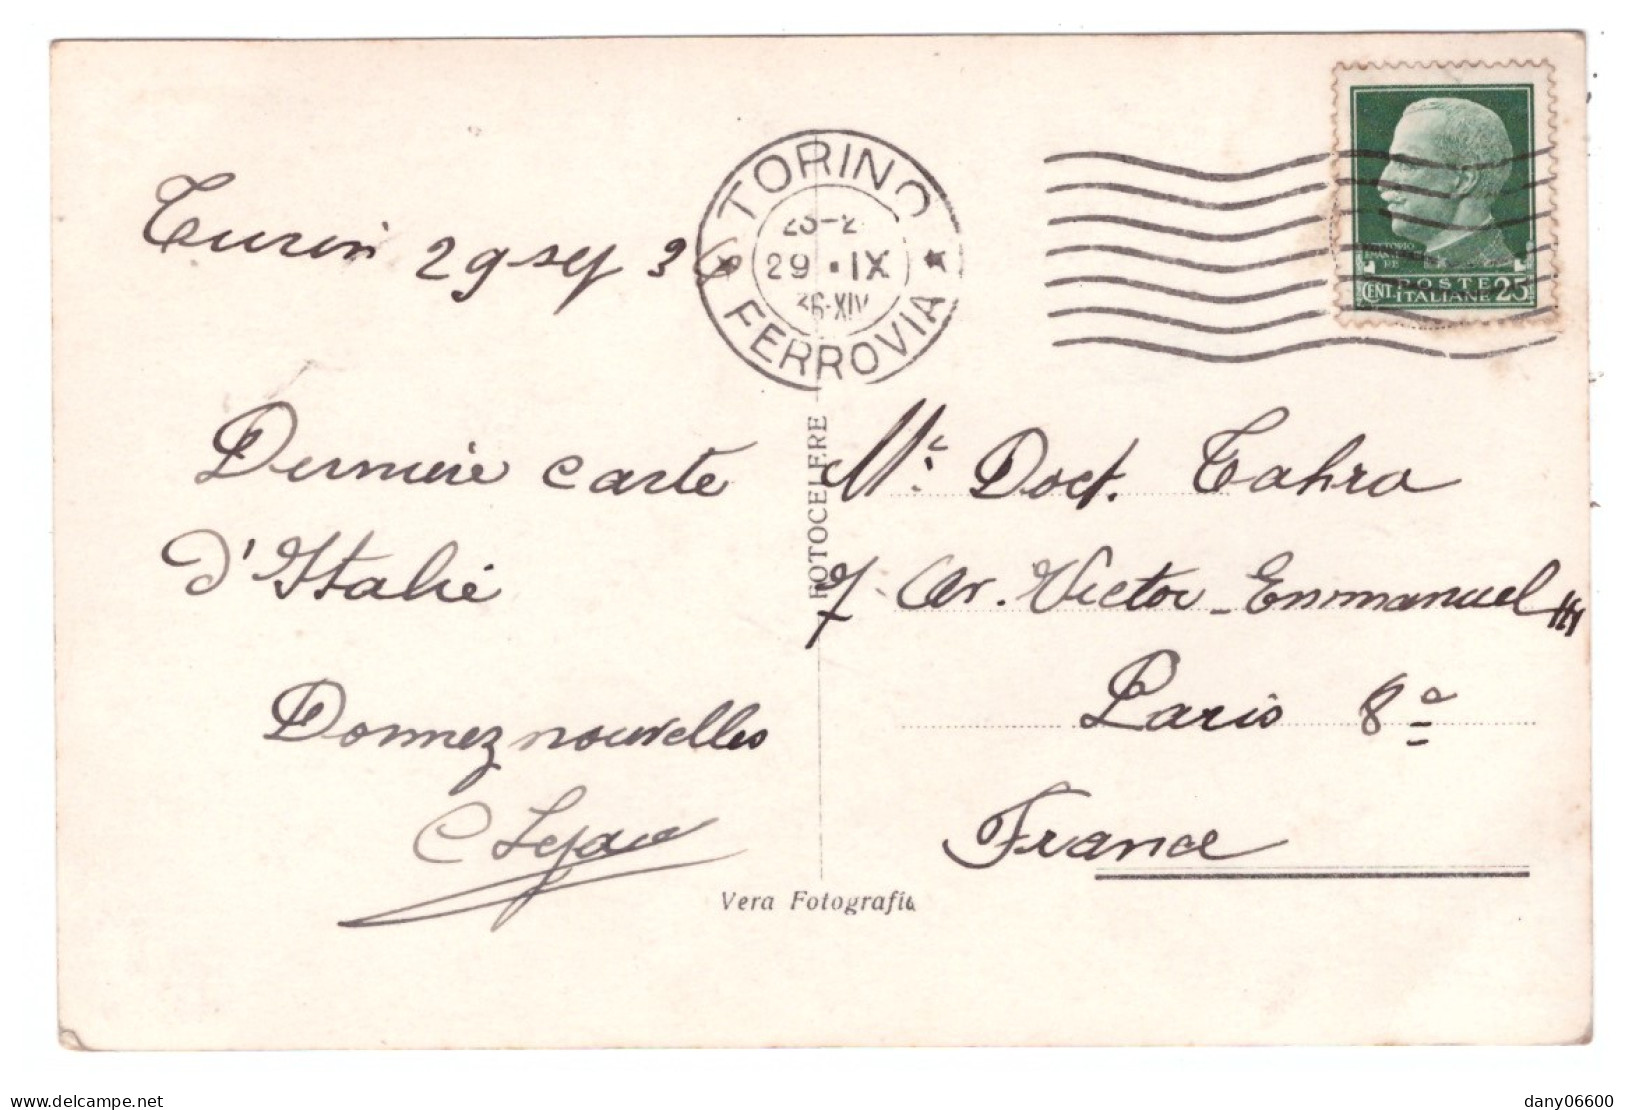 TORINO
29 · IX
36·XIV
FERROVIA
VITTORIO
POSTE
CENT. ITALIANE 25
Turin 29 sep 36
Dernière carte
d'Italie
Donnez nouvelles
FOTOCELERE
Mr. Doct. Tahra
7 Av. Victor-Emmanuel III
Paris 8e
France
Vera Fotografia
delcampe.net
dany06600